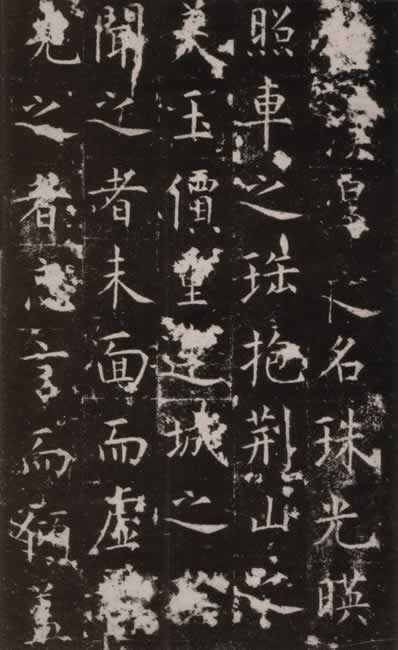 臯之名珠光暎
照車之珤抱荆山之
美玉價重連城之
聞之者未面而虛
見之者忘言而